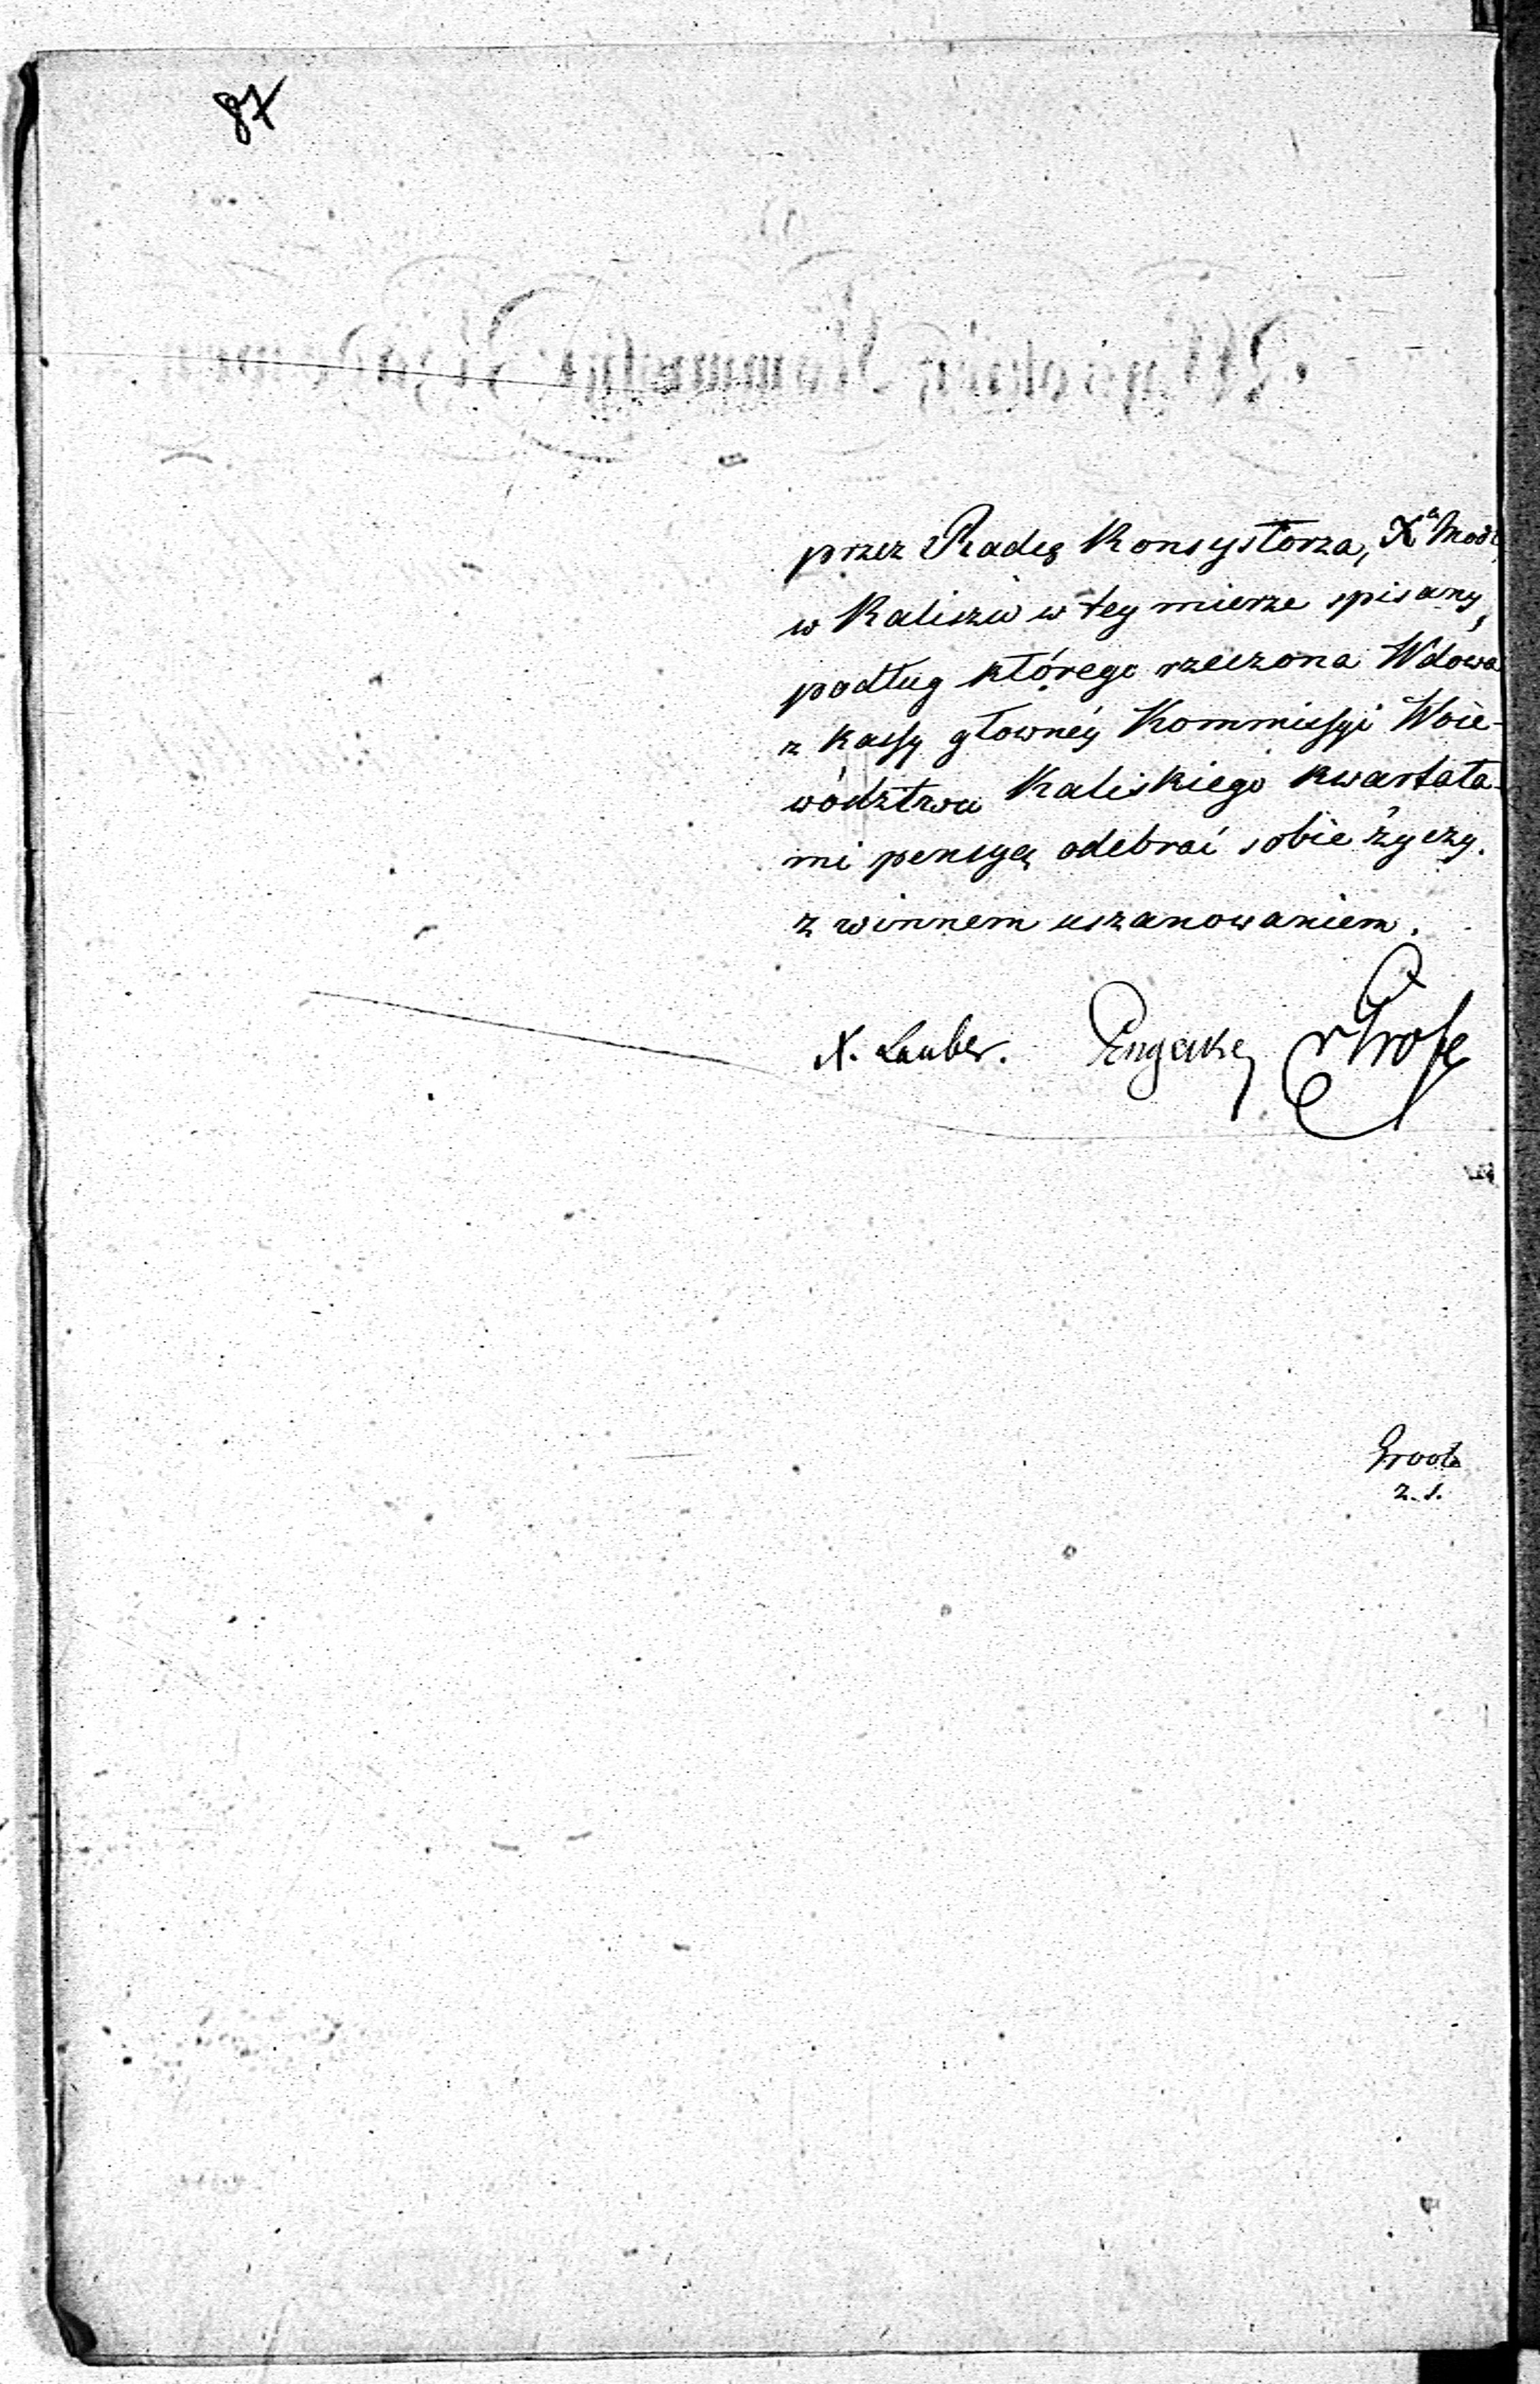 87
przez Radcę Konsystorza, Xa Modl
w Kaliszu w tey mierze spisany,
podług którego rzeczona Wdowa
z kassy głowney Kommissyi Woie-
wództwa Kaliskiego kwartała-
mi pensyą odebrać sobie życzy.
z winnem uszanowaniem.
X. Lauber.